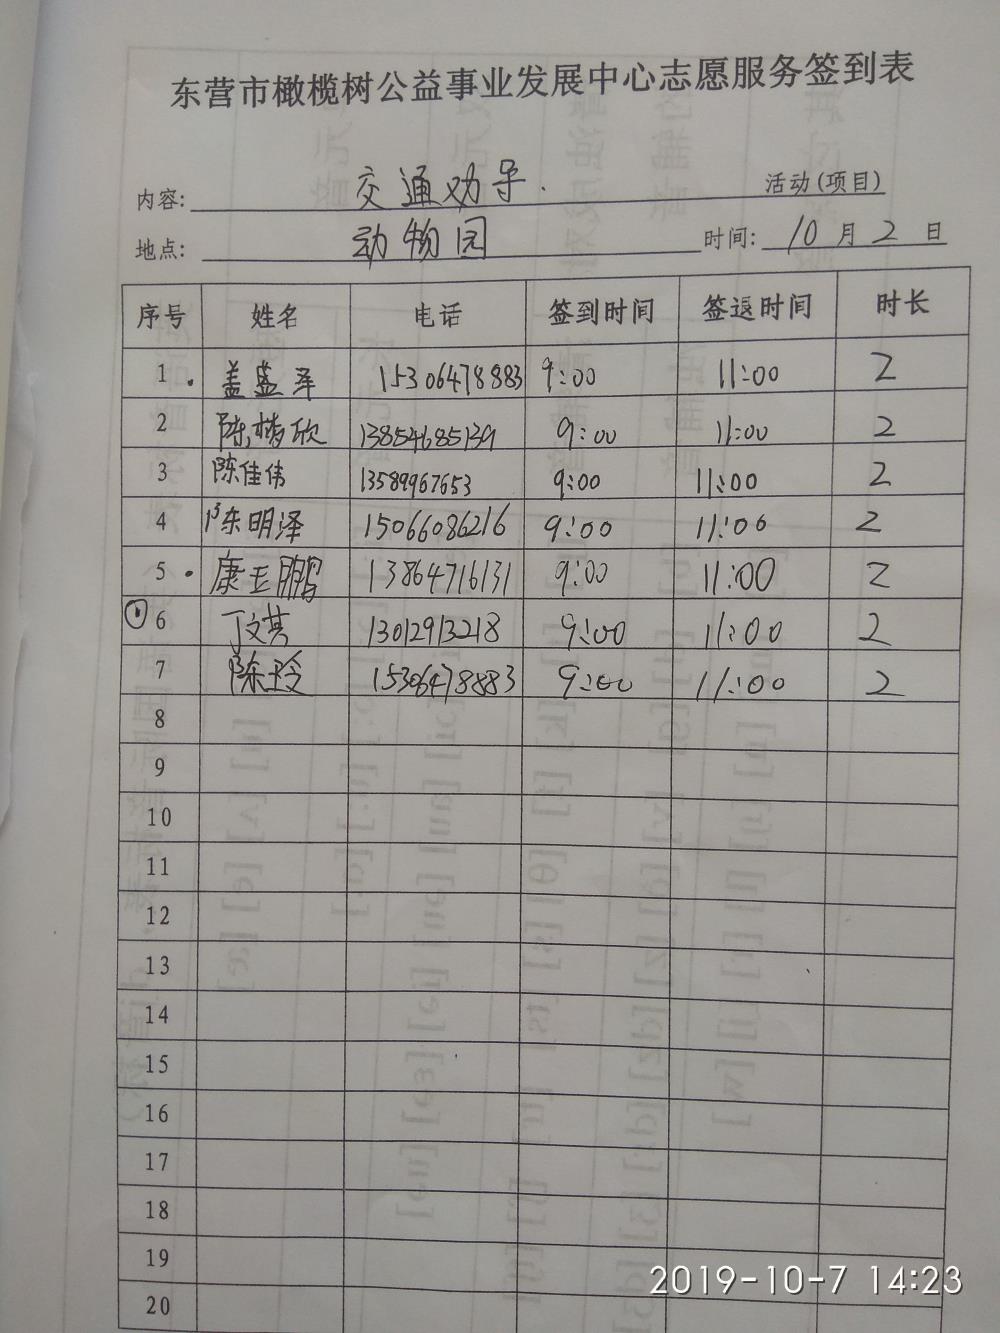 东营市橄榄树公益事业发展中心志愿服务签到表
内容: 交通劝导. 活动(项目)
地点: 动物园 时间: 10月2日
序号 姓名 电话 签到时间 签退时间 时长
1. 盖盛泽 15306478883 9:00 11:00 2
2 陈梦欣 13854685139 9:00 11:00 2
3 陈佳伟 13589967653 9:00 11:00 2
4 陈明泽 15066086216 9:00 11:00 2
5. 康玉鹏 13864716131 9:00 11:00 2
6 丁文其 13012913218 9:00 11:00 2
7 陈玲 15306478883 9:00 11:00 2
8
9
10
11
12
13
14
15
16
17
18
19
20
2019-10-7 14:23